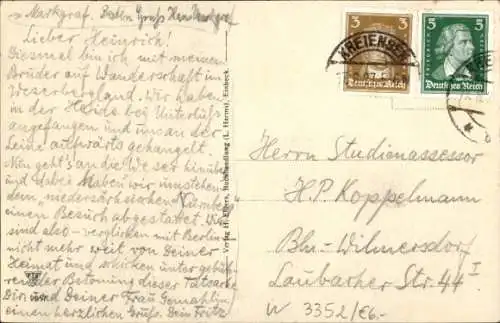 Markgraf.
Lieber Heinrich!
Diesmal bin ich mit meinem
Bruder auf Wanderschaft im
Weserbergland. Wir haben
in der Heide bei Unterlüß
angefangen und uns an der
Leine aufwärts gehangelt.
Nun geht's an die Weser hinüber
und dabei haben wir umstehen-
dem „niedersächsischen Nürnberg"
einen Besuch abgestattet. Wir
sind also - verglichen mit Berlin -
nicht mehr weit von Deiner
Heimat und schicken unter gebüh-
render Betonung dieser Tatsache
Dir und Deiner Frau Gemahlin
einen herzlichen Gruß. Dein Fritz
Verlag H. Ehlers, Buchhandlung (L. Herms), Einbeck
3 3
Deutsches Reich
5 5
Deutsches Reich
KREIENSEN
Herrn Studienassessor
H. P. Koppelmann
Bln-Wilmersdorf
Laubacher Str. 44 I
W 3352/E6.-